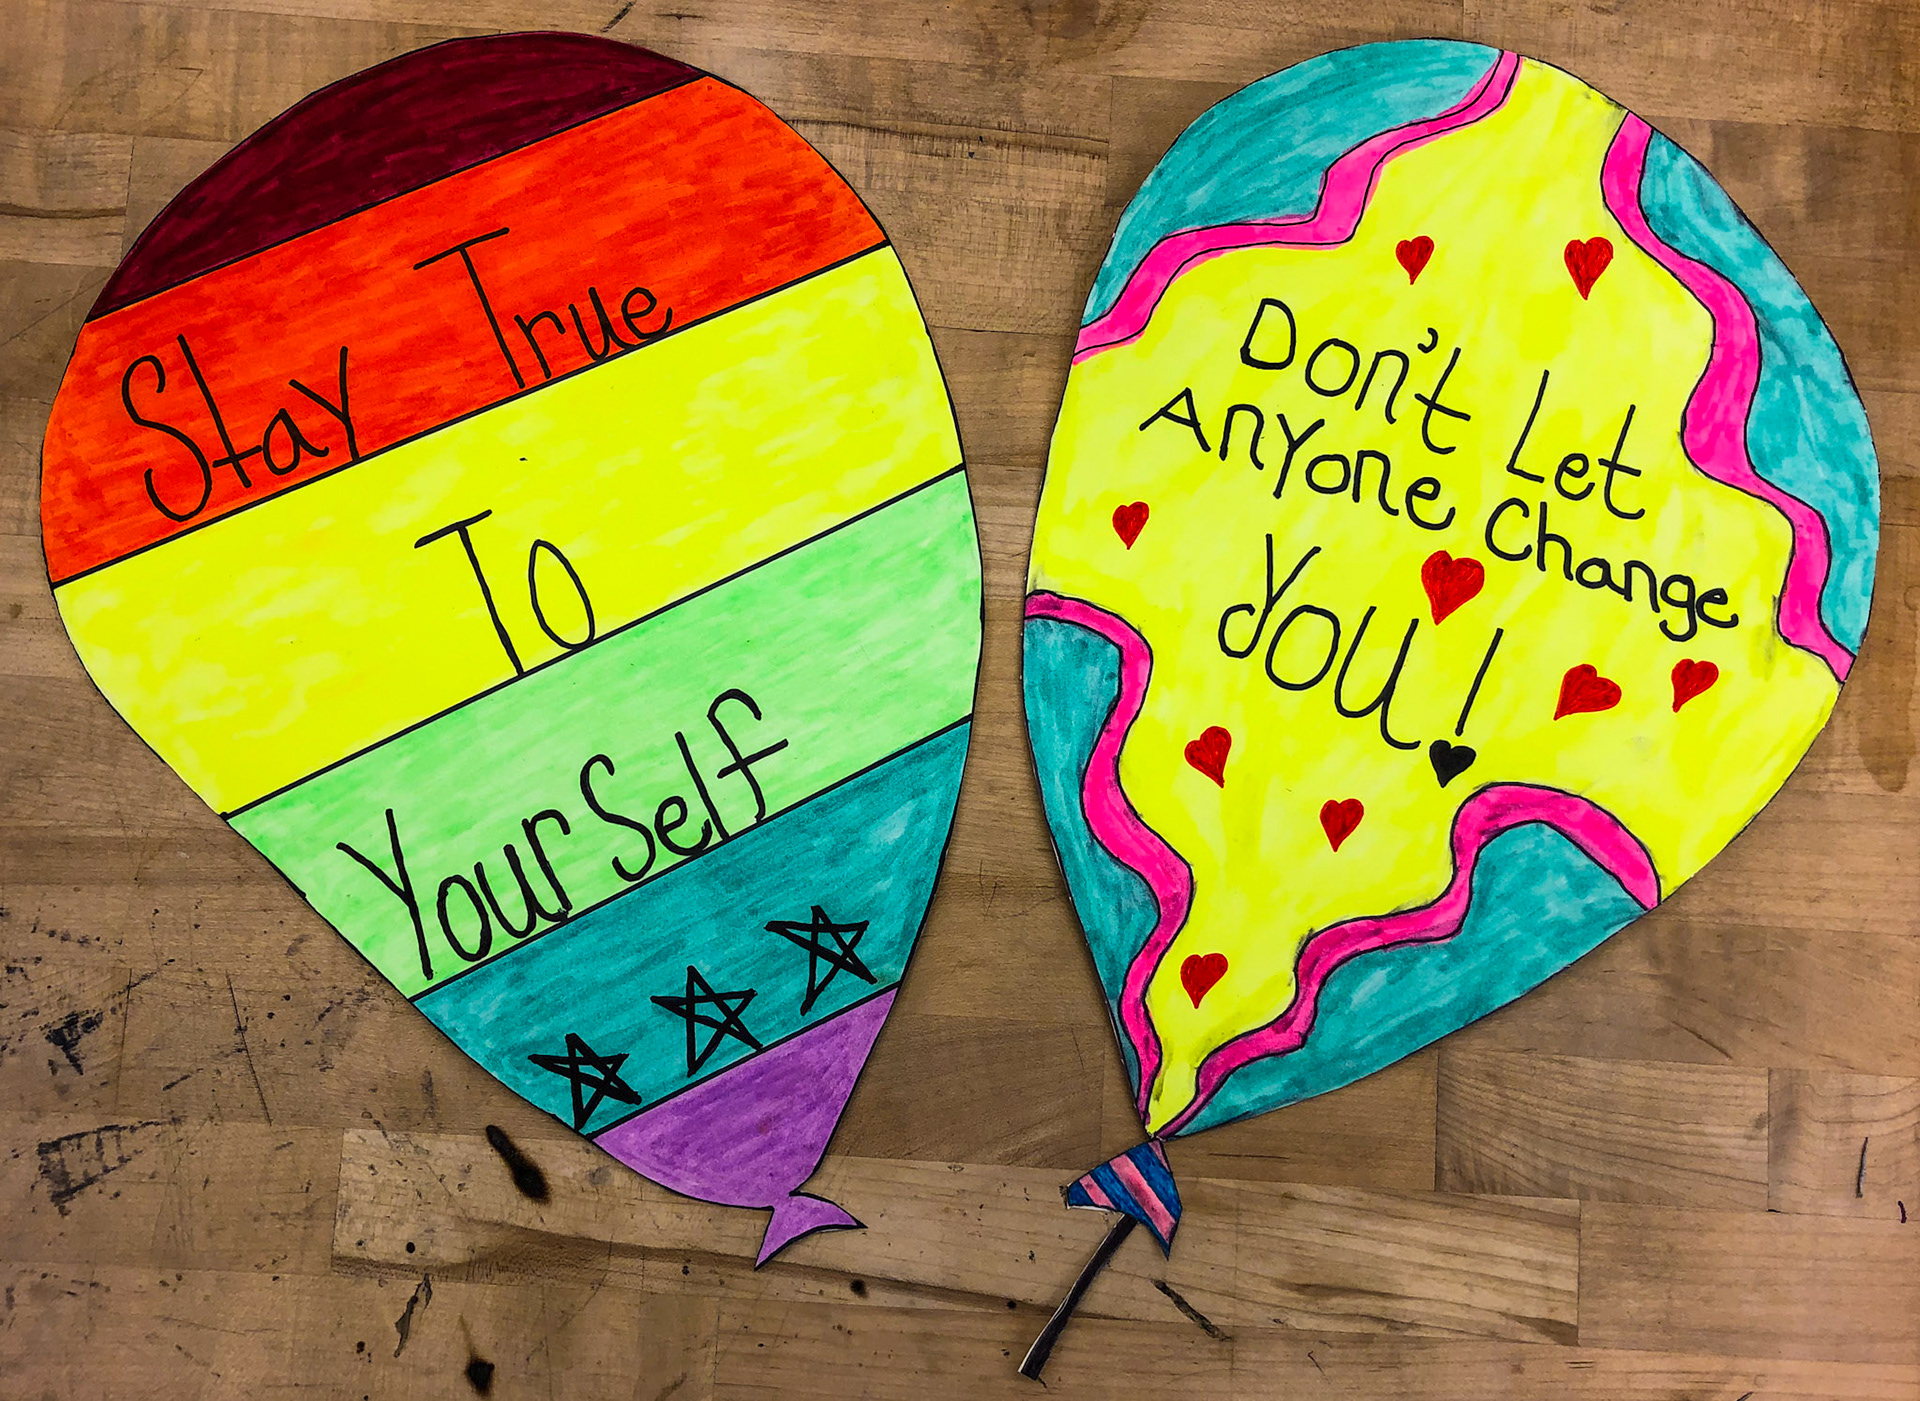 Stay True
To
YourSelf
Don't Let
Anyone Change
you!